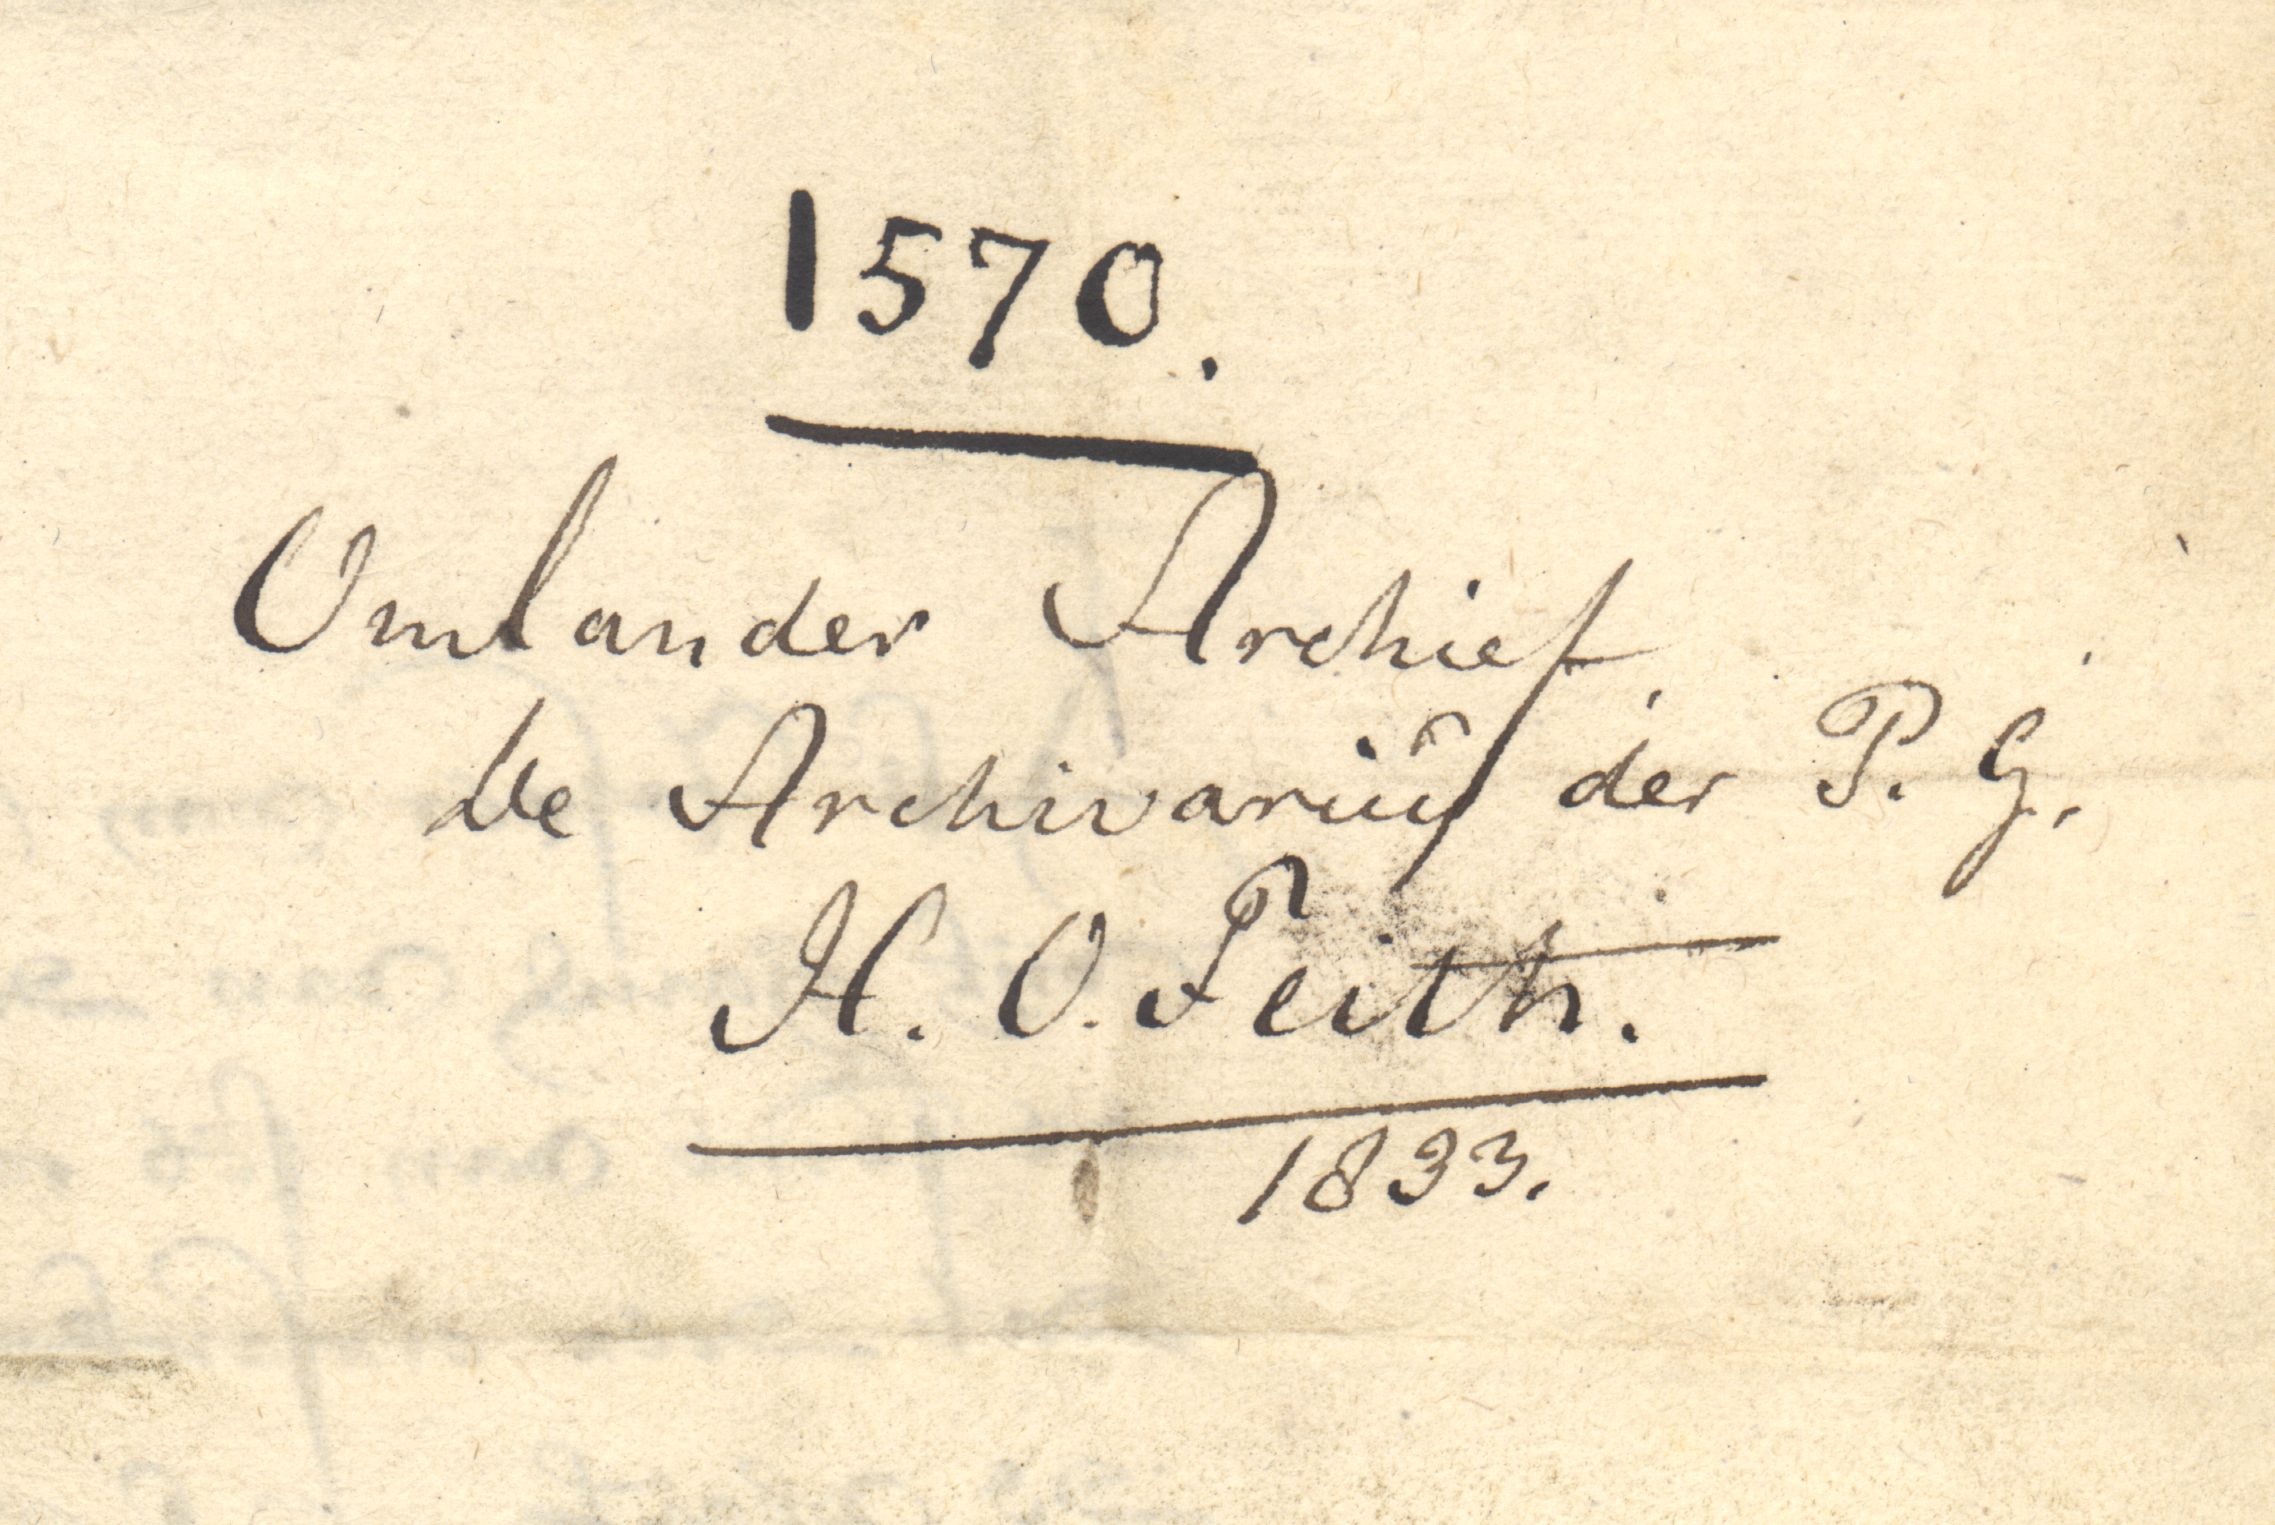 1570.
Omlander Archief
De Archivarius der P. G.
H. O. Feith.
1833.